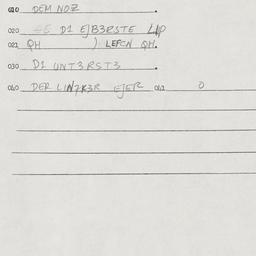 010 DEM NOZ
020 D1 EJB3RSTE LIP
021 QH ) LEFCN QH.
030 D1 UNT3RST3
040 DER LIN7K3R EJER 041 0